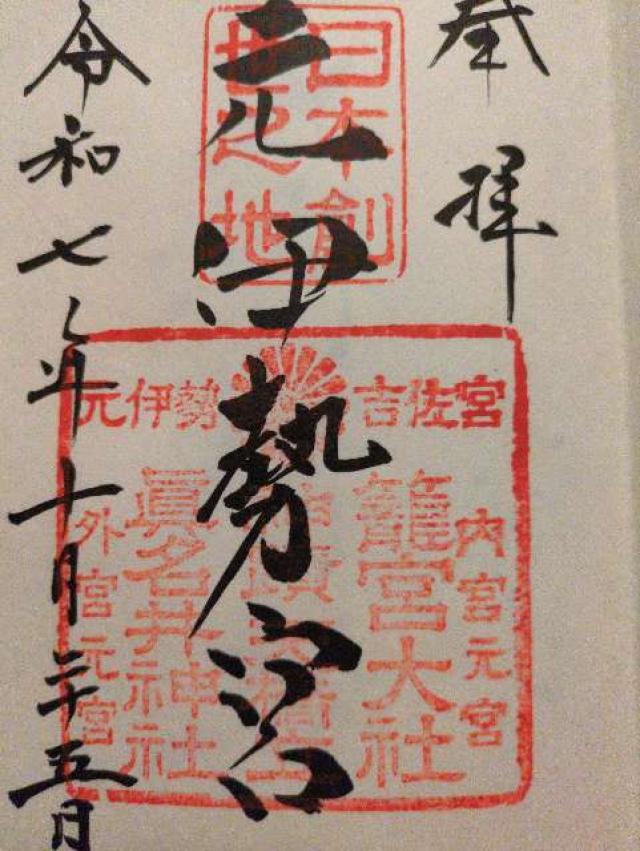 奉拝
日本創
世之地
元伊勢宮
元伊勢 吉佐宮
内宮元宮
籠宮大社
眞名井神社
外宮元宮
令和七年十月二十五日